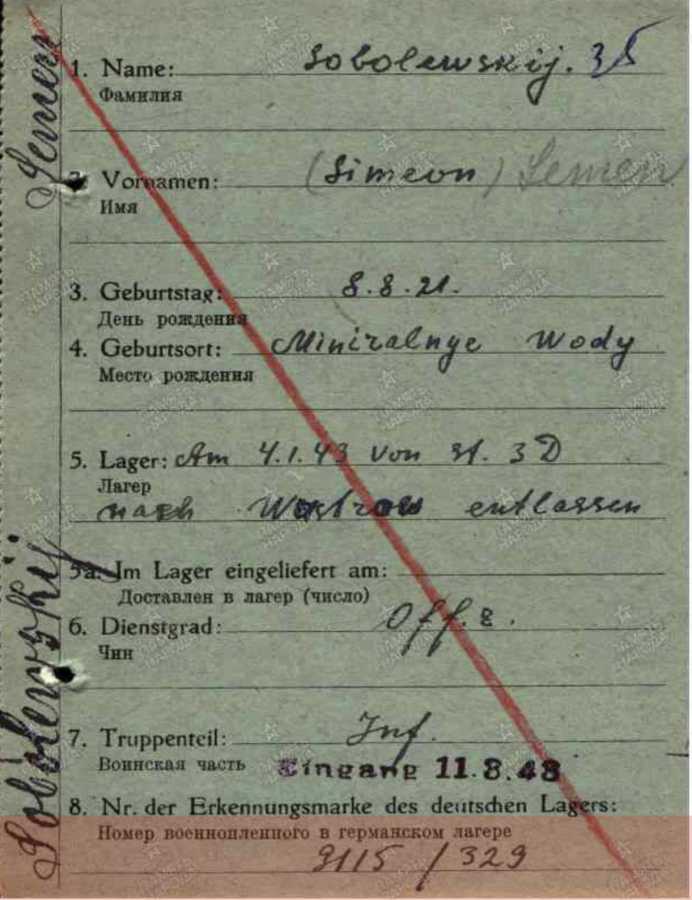 1. Name: Sobolewskij. 35
Фамилия
2. Vornamen: (Simeon) Semen
Имя
3. Geburtstag: 8.8.21.
День рождения
4. Geburtsort: Miniralnye Wody
Место рождения
5. Lager: Am 4.1.43 von st. 3 D
Лагер
nach entlassen
5a. Im Lager eingeliefert am:
Доставлен в лагер (число)
6. Dienstgrad: Off.
Чин
7. Truppenteil: Inf.
Воинская часть Eingang 11.8.43
8. Nr. der Erkennungsmarke des deutschen Lagers:
Номер военнопленного в германском лагере
9115 / 329
Sobolewskij Semen